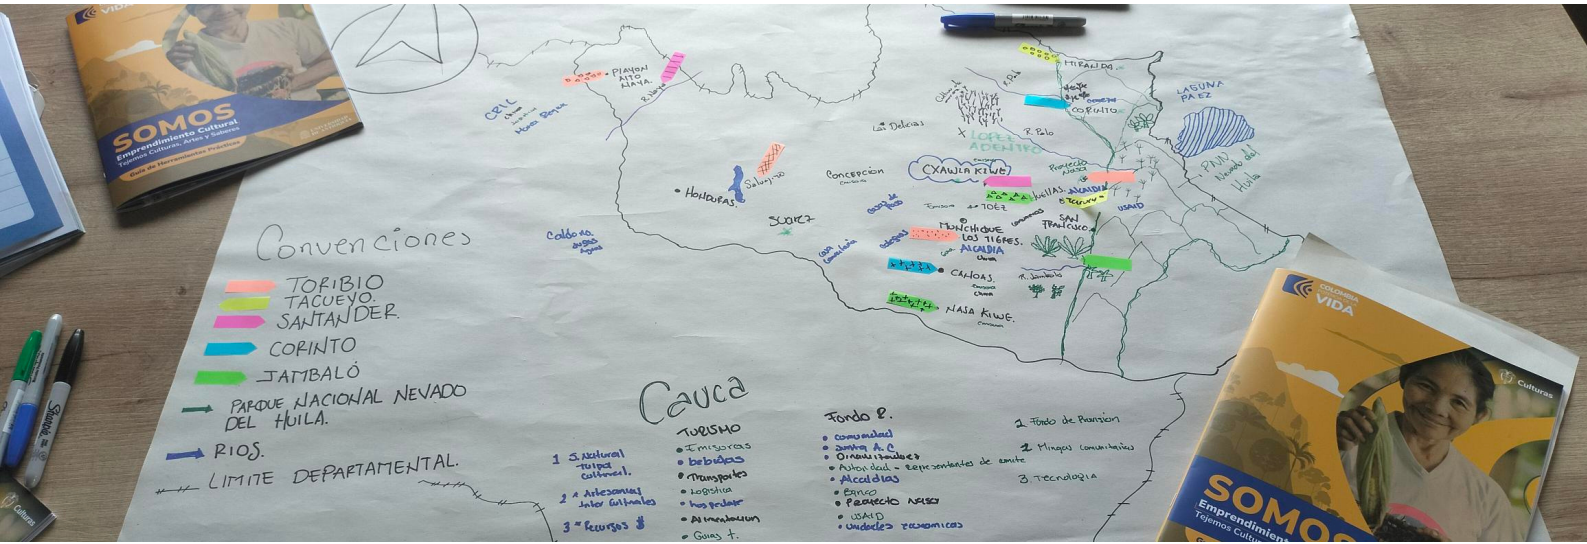 VIDA
SOMOS
Emprendimiento Cultural
Tejemos Culturas, Artes y Saberes
Guía de Herramientas Prácticas
PLAYON
ALTO
NAYA.
R. Naya
CRIC
MIRANDA
R. Palo
CORINTO
LAGUNA
PAEZ
Las Delicias
R. Palo
LOPEZ
ADENTRO
PNN
Nevado del
Huila
CONCEPCION
CXAWLA KIWE
Proyecto
Nasa
HUELLAS
ALCALDIA
USAID
Salvajina
HONDURAS.
TOEZ
SUAREZ
SAN
FRANCISCO.
MUNCHIQUE
LOS TIGRES.
ALCALDIA
Caldono
CANOAS.
R. Jambalo
NASA KIWE.
Convenciones
TORIBIO
TACUEYO.
SANTANDER.
CORINTO
JAMBALÓ
PARQUE NACIONAL NEVADO
DEL HUILA.
RIOS.
LIMITE DEPARTAMENTAL.
Cauca
1 S. Natural
tulpa
cultural.
2 Artesanias
Inter Culturales
3 Recursos $
TURISMO
Emisoras
bebidas
Transportes
Logistica
hospedaje
Alimentacion
Guias t.
Fondo 2.
comunidad
Junta A.C.
Autoridad - representantes de
Alcaldias
Banco
Proyecto Nasa
USAID
unidades economicas
1 Fondo de
2 Mingas comunitarias
3. Tecnologia
Sharpie
Culturas
COLOMBIA
VIDA
Culturas
SOMOS
Emprendimient
Tejemos Cultu